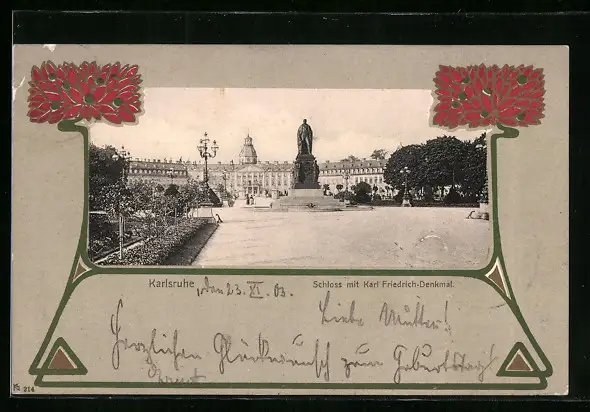 Karlsruhe, den 23. XI. 03.
Schloss mit Karl Friedrich-Denkmal.
Liebe Mutter!
Herzlichen Glückwunsch zum Geburtstag!
Ernst
214